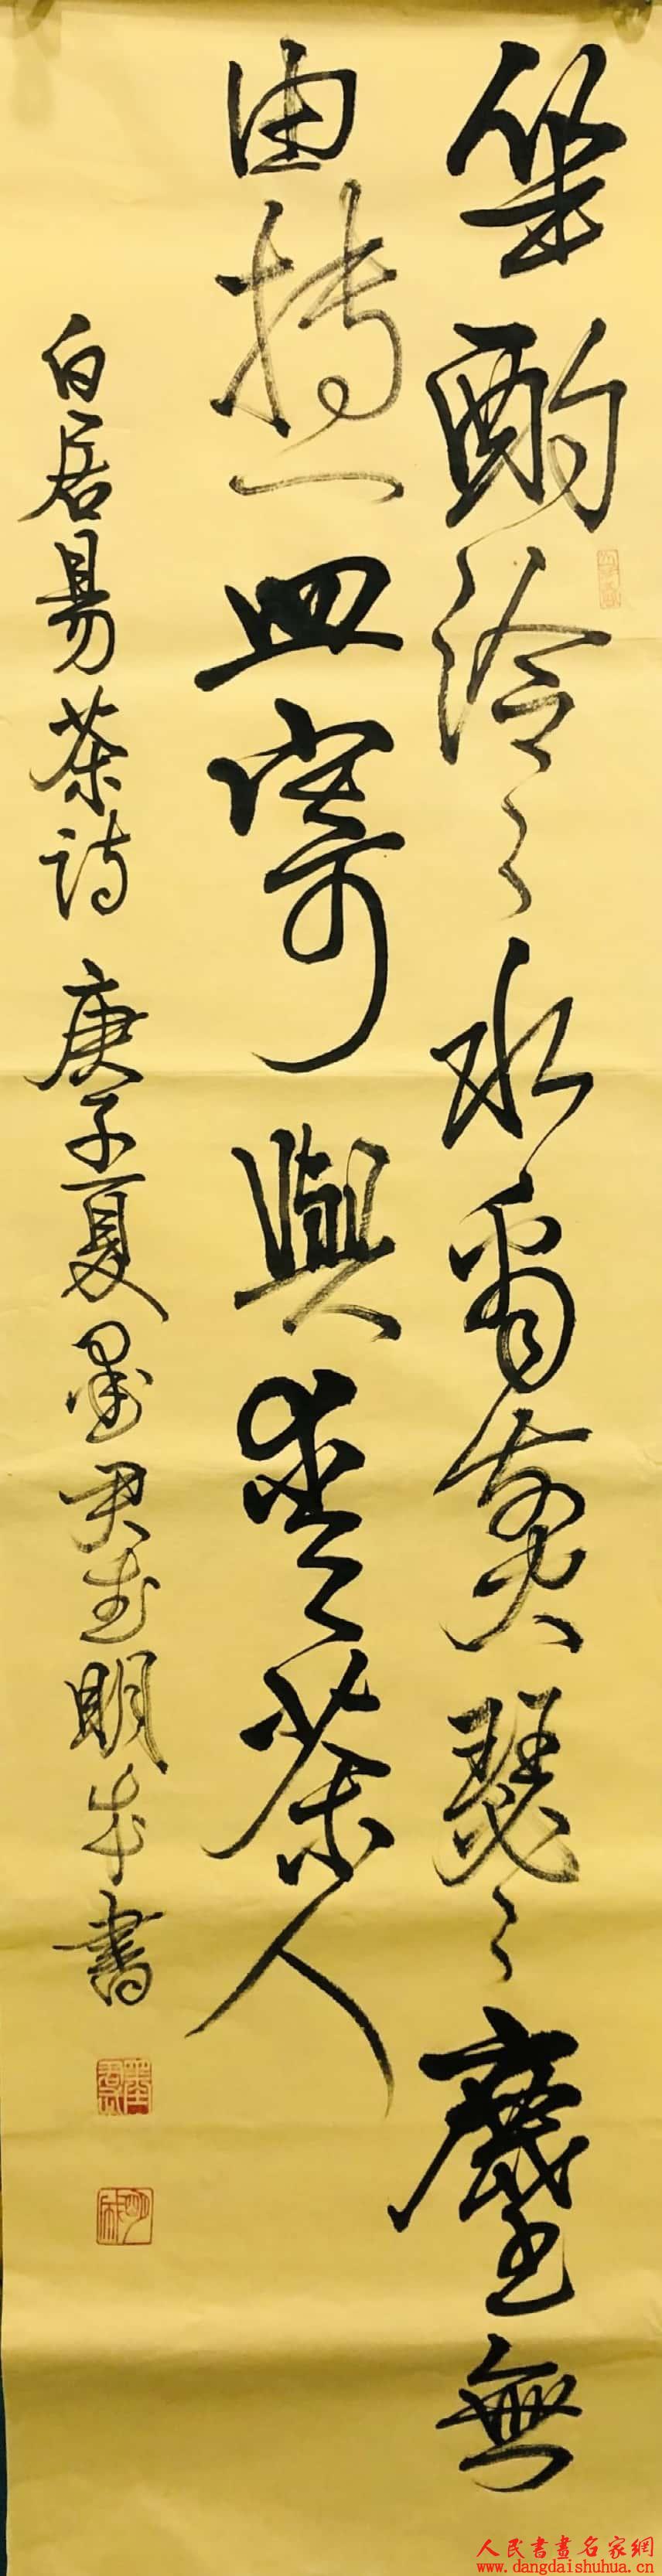 坐酌泠々水看煎瑟々塵無
由持一皿寄與愛茶人
白居易茶詩 庚子夏墨 明 書
人民書畫名家網
www.dangdaishuhua.cn